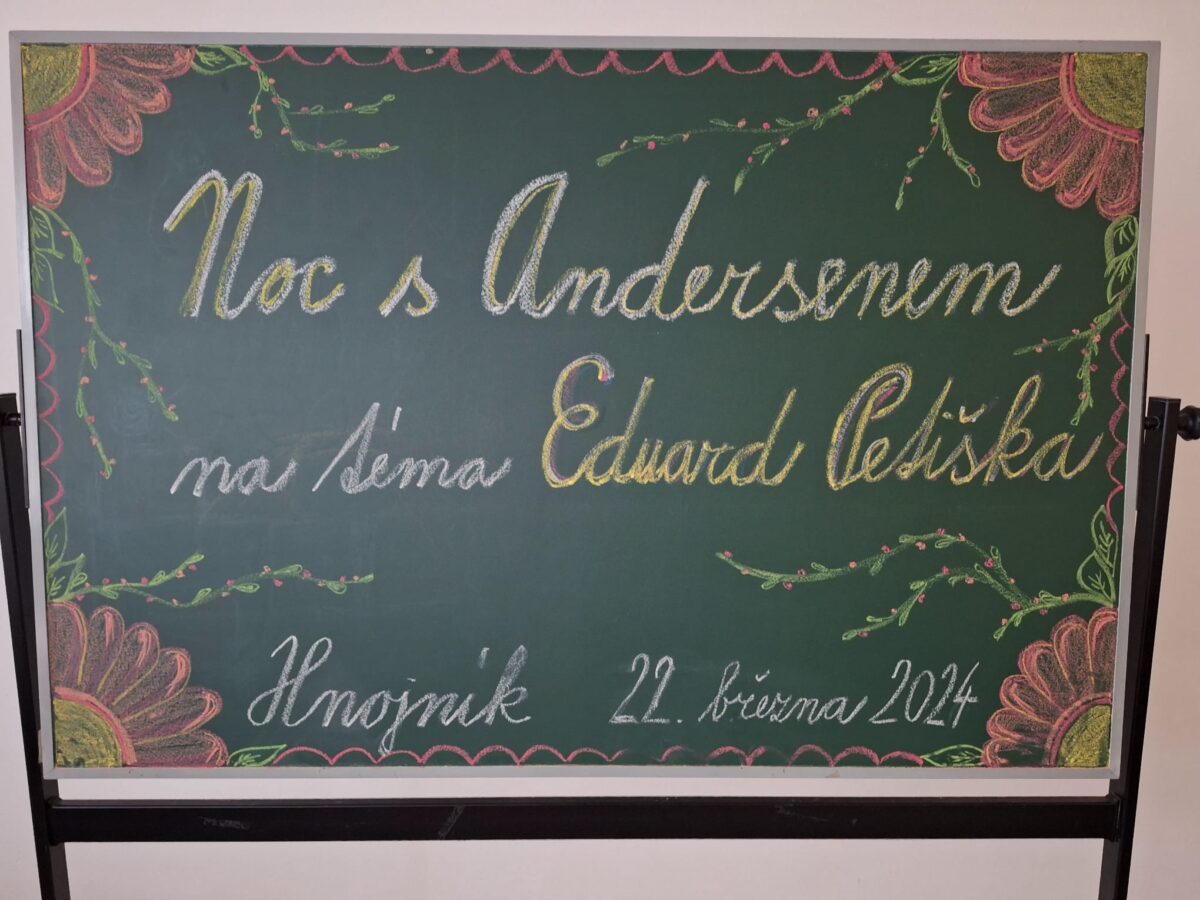 Noc s Andersenem
na téma Eduard Petiška
Hnojník 22. března 2024